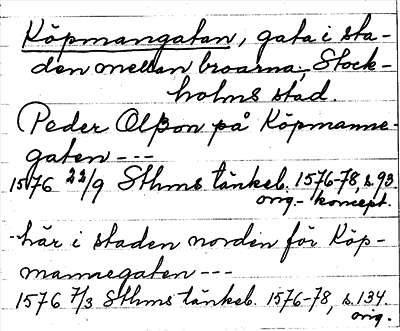 Köpmangatan, gata i sta-
den mellan broarna, Stock-
holms stad.
Peder Olßon på Köpmanne-
gaten ---
1576 22/9 Sthms tänkeb. 1576-78, s. 93.
orig.- koncept.
-här i staden norden för Köp-
mannegaten ---
1576 7/3 Sthms tänkeb. 1576-78, s. 134
orig.